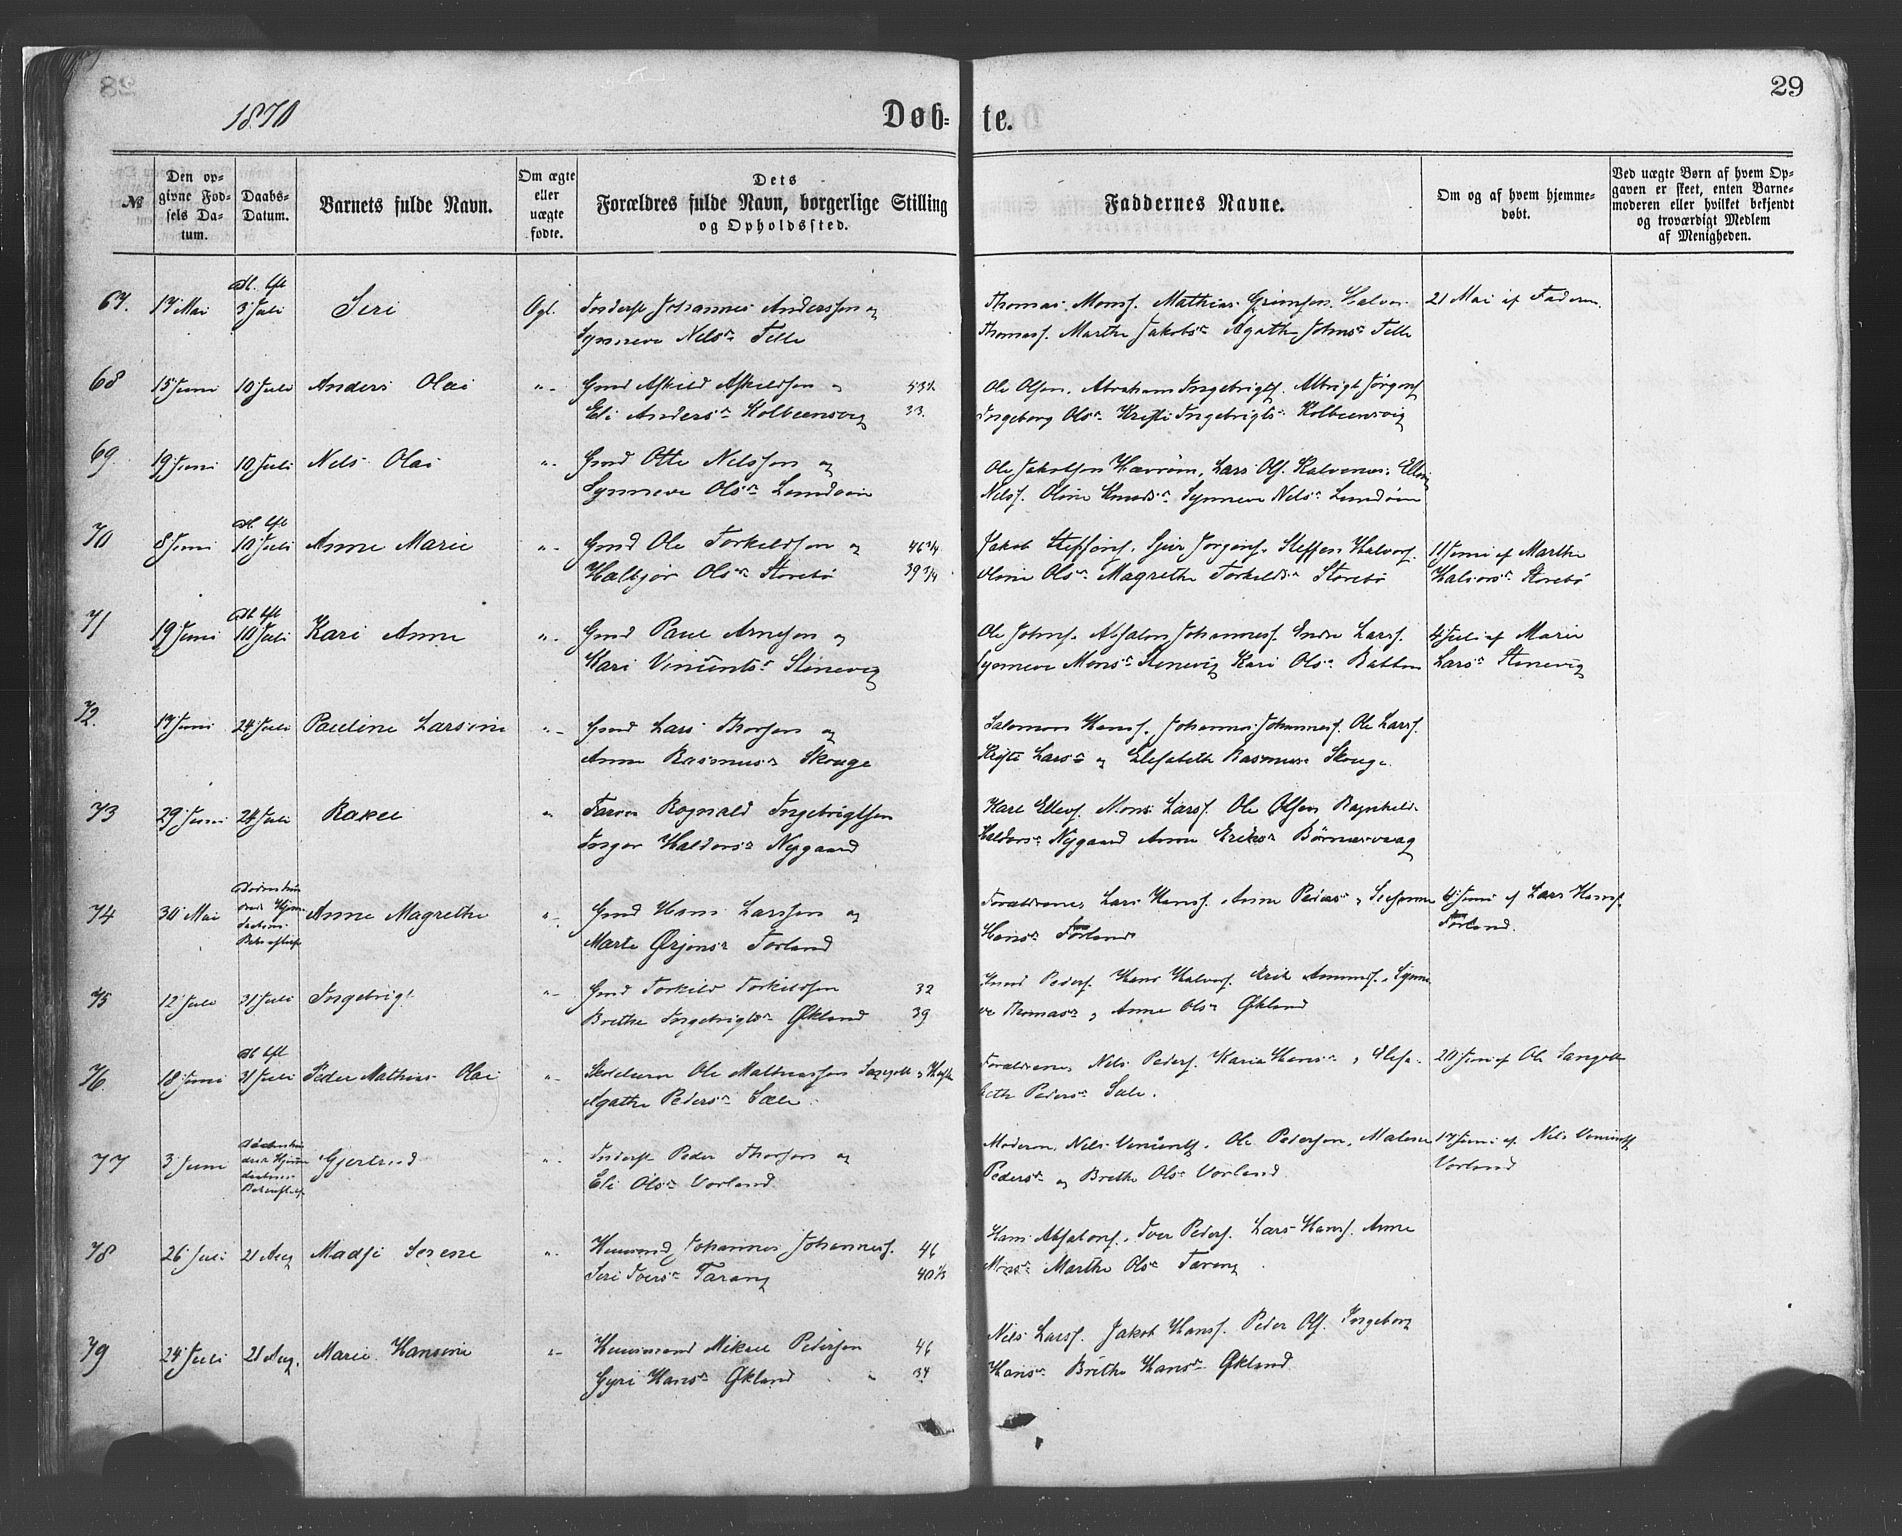 29
1870
Døb= te.
№
Den op-
givne Fød-
sels Da-
tum.
Daabs-
Datum.
Barnets fulde Navn.
Om ægte
eller
uægte
fødte.
Dets
Forældres fulde Navn, borgerlige Stilling
og Opholdssted.
Faddernes Navne.
Om og af hvem hjemme-
døbt.
Ved uægte Børn af hvem Op-
gaven er skeet, enten Barne-
moderen eller hvilket bekjendt
og troværdigt Medlem
af Menigheden.
67. 17 Mai 3 Juli Seri Ægt. Johannes Anderssen og
Synneve Nelsr Telle
Thomas Monss. Mathias Halvor
Thomass. Marthe Jakobsr Agathe Johnsr Telle
21 Mai af Faderen
68 15 Juni 10 Juli Anders Olai "- Gmd Askild Askildsen og
Eli Andersr Kolbeensvig 33.
Ole Olsen, Abraham Ingebrigts. Albrigt Jørgens.
Ingeborg Olsr Kristi Ingebrigtsr Kolbeensvig
69. 19 Juni 10 Juli Nels Olai "- Gmd Otte Nelssen og
Synneve Olsr Lundøen
Ole Jakobsen Lars Ols. Kalvenes,
Nelss. Oline Knudsr Synneve Nelsr Lundøen
70 8 Juni 10 Juli Anne Marie "- Gmd Ole Torkeldsen og 46 3/4
Halbjør Olsr Storebø 39 3/4
Jakob Steffens. Sjur Jørgens. Steffen Halvors.
Oline Olsr Magrethe Torkeldsr Storebø
11 Juni af Marthe
Halvorsr Storebø
71 19 Juni 10 Juli Kari Anne "- Gmd Paul Arnesen og
Kari Vincentsr Stenevig
Ole Johns. Absalon Johanness. Endre Larss.
Synneve Monsr Stenevig Kari Olsr Bakken
4 Juli af Marie
Larsr Stenevig
72. 17 Juni 24 Juli Pauline Larsine "- Gmd Lars Thorsen og
Anne Rasmusr Skouge
Salomon Hanss. Johannes Johanness. Ole Larss.
Larsr og Elisabeth Rasmusr Skouge
73 29 Juni 24 Juli Rakel " Rognald Ingebrigtsen
Inger Haldorsr Nygaard
Karl Ellevs. Mons Larss. Ole Olsen Ragnhild
Haldorsr Nygaard Anne Eriksr Børnesvaag
74 30 Mai Anne Magrethe "- Gmd Hans Larssen og
Marte Ørjansr Forland
Forældrene, Lars Hanss. Anne Pedersr,
Hansr Forland
4 Juni af Lars Hanss.
Forland.
75 12 Juli 31 Juli Ingebrigt "- Gmd Torkild Torkildsen 32
Brethe Ingebrigtsr Økland 39
Knud Peders. Hans Halvors. Erik Synne
ve Thomasr, Anne Olsr Økland
76. 18 Juni 31 Juli Peder Mathias Olai "- Ole Mathiassen
Agathe Pedersr Sæle
Forældrene, Nels Peders. Karia Hansr, Elisa-
beth Pedersr Sæle.
20 Juni af Ole
77 3 Juni Gjertrud "- Inderst Peder Thorsen og
Eli Olsr Vorland
Moderen, Nels Vincents. Ole Pedersen, Malene
Pedersr og Brethe Olsr Vorland
17 Juni af Nels Vincents.
Vorland
78 26 Juli 21 Aug Madsi Serene "- Huusmand Johannes Johanness. 46
Seri Iversr Tarang 40 1/3
Hans Absalons. Iver Peders. Lars Hanss. Anne
Monsr Marthe Olsr Tarang
79 24 Juli 21 Aug. Marie Hansine "- Huusmand Mikael Pedersen 46
Gyri Hansr Økland 34
Nels Larss. Jakob Hanss. Peder Ols. Ingeborg
Hansr Brethe Hansr Økland